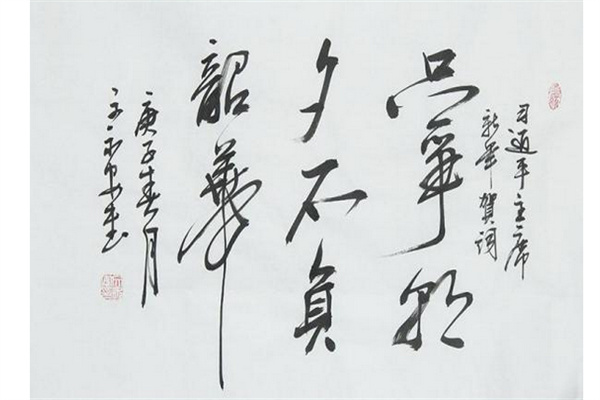 习近平主席
新年賀词
只爭朝
夕不負
韶華
庚子春月